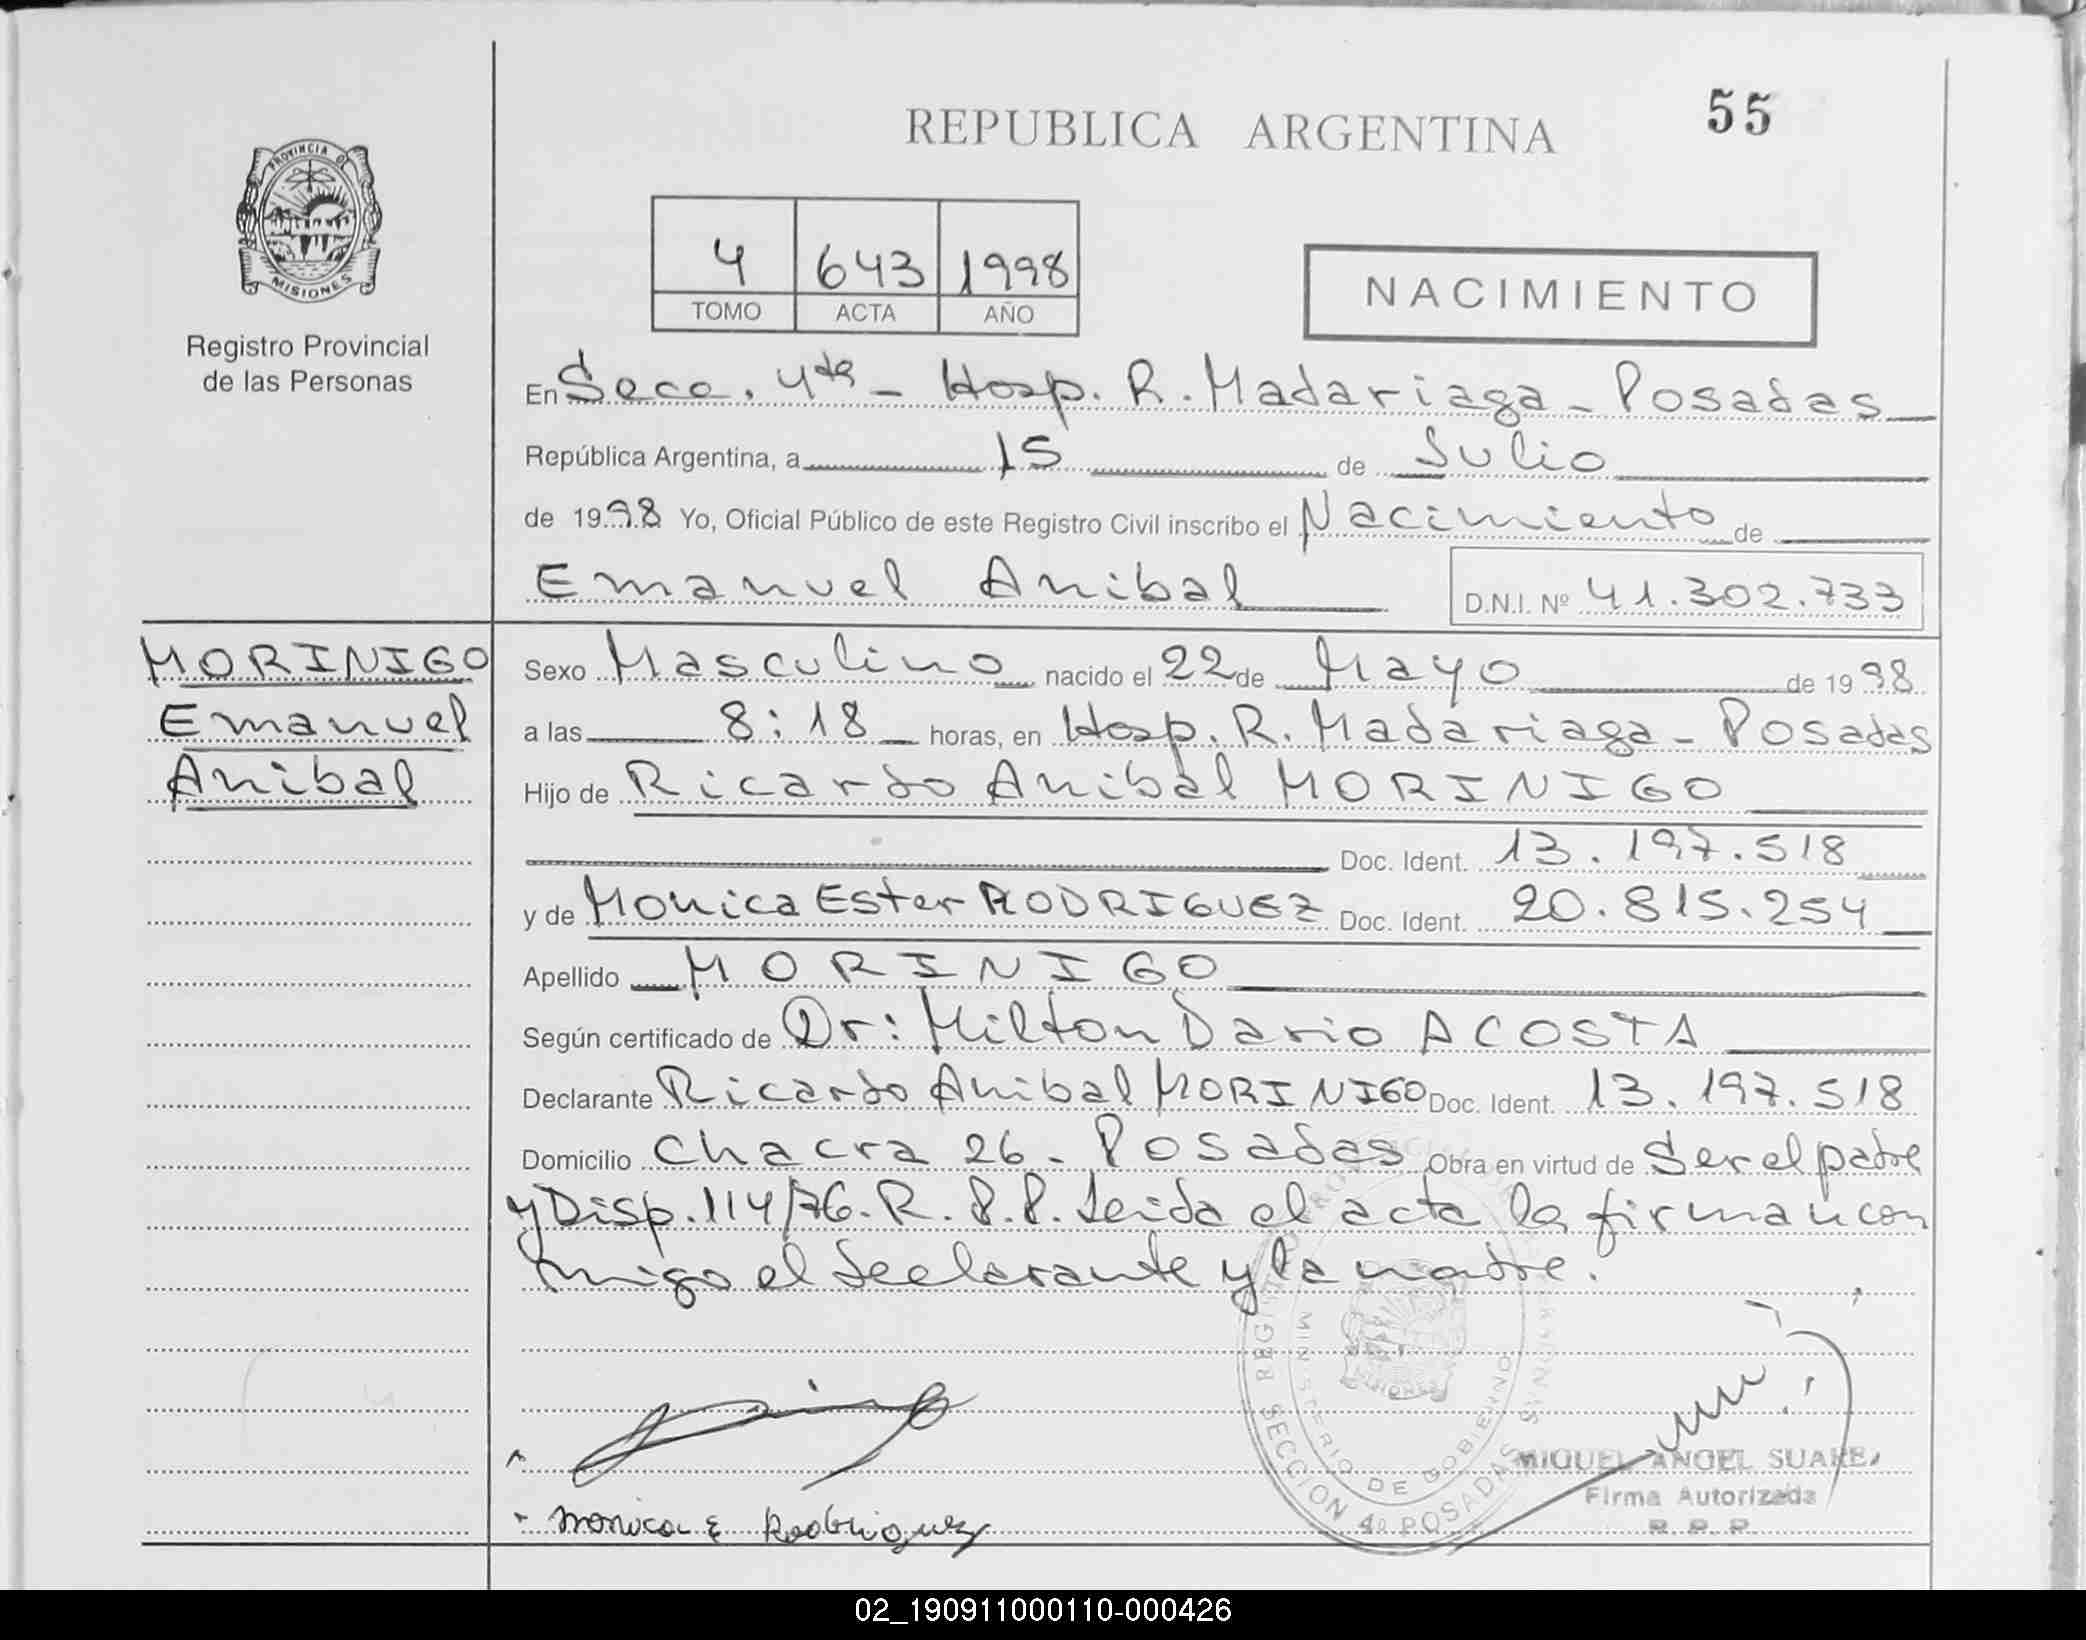 55
REPUBLICA ARGENTINA
PROVINCIA D
MISIONES
Registro Provincial
de las Personas
4 643 1998
TOMO ACTA AÑO
NACIMIENTO
En Secc. 4ta - Hosp. R. Madariaga - Posadas
República Argentina, a 15 de Julio
de 1998 Yo, Oficial Público de este Registro Civil inscribo el Nacimiento de
Emanuel Anibal D.N.I. Nº 41.302.733
MORINIGO
Emanuel
Anibal
Sexo Masculino nacido el 22 de Mayo de 1998
a las 8:18 horas, en Hosp. R. Madariaga - Posadas
Hijo de Ricardo Anibal MORINIGO
Doc. Ident. 13.197.518
y de Monica Ester RODRIGUEZ Doc. Ident. 20.815.254
Apellido MORINIGO
Según certificado de Dr: Milton Dario ACOSTA
Declarante Ricardo Anibal MORINIGO Doc. Ident. 13.197.518
Domicilio Chacra 26 - Posadas Obra en virtud de Ser el padre
y Disp. 114/76. R. P. P. Leida el acta la firman con
migo el declarante y la madre.
MINISTERIO DE GOBIERNO
SECCION 4a POSADAS
Monica E Rodriguez
MIGUEL ANGEL SUAREZ
Firma Autorizada
R. P. P.
02_190911000110-000426